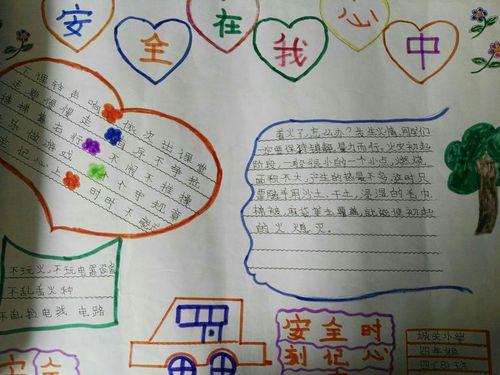 安全在我心中
下课铃声响 依次出课堂
走廊慢慢走 有序不争抢
楼梯靠右行 不闹不推撞
课乐做游戏 个个守规章
牢记心上 时时不
着火了,怎么办?发生火情,同学们
一定要保持镇静,量力而行。火灾初起
阶段,一般很小的一个小点,燃烧
面积不大,产生的热量不多。这时只
要随手用沙土、干土、浸湿的毛巾、
棉被、麻袋等去覆盖,就能使初起
的火熄灭。
不玩火,不玩电器设备
不乱丢火种
不乱拉电线 电路
安全时
刻记心
城关小学
四年级
安全